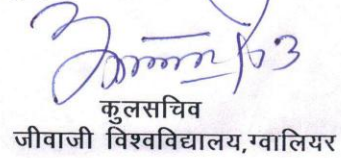 कुलसचिव
जीवाजी विश्वविद्यालय,ग्वालियर